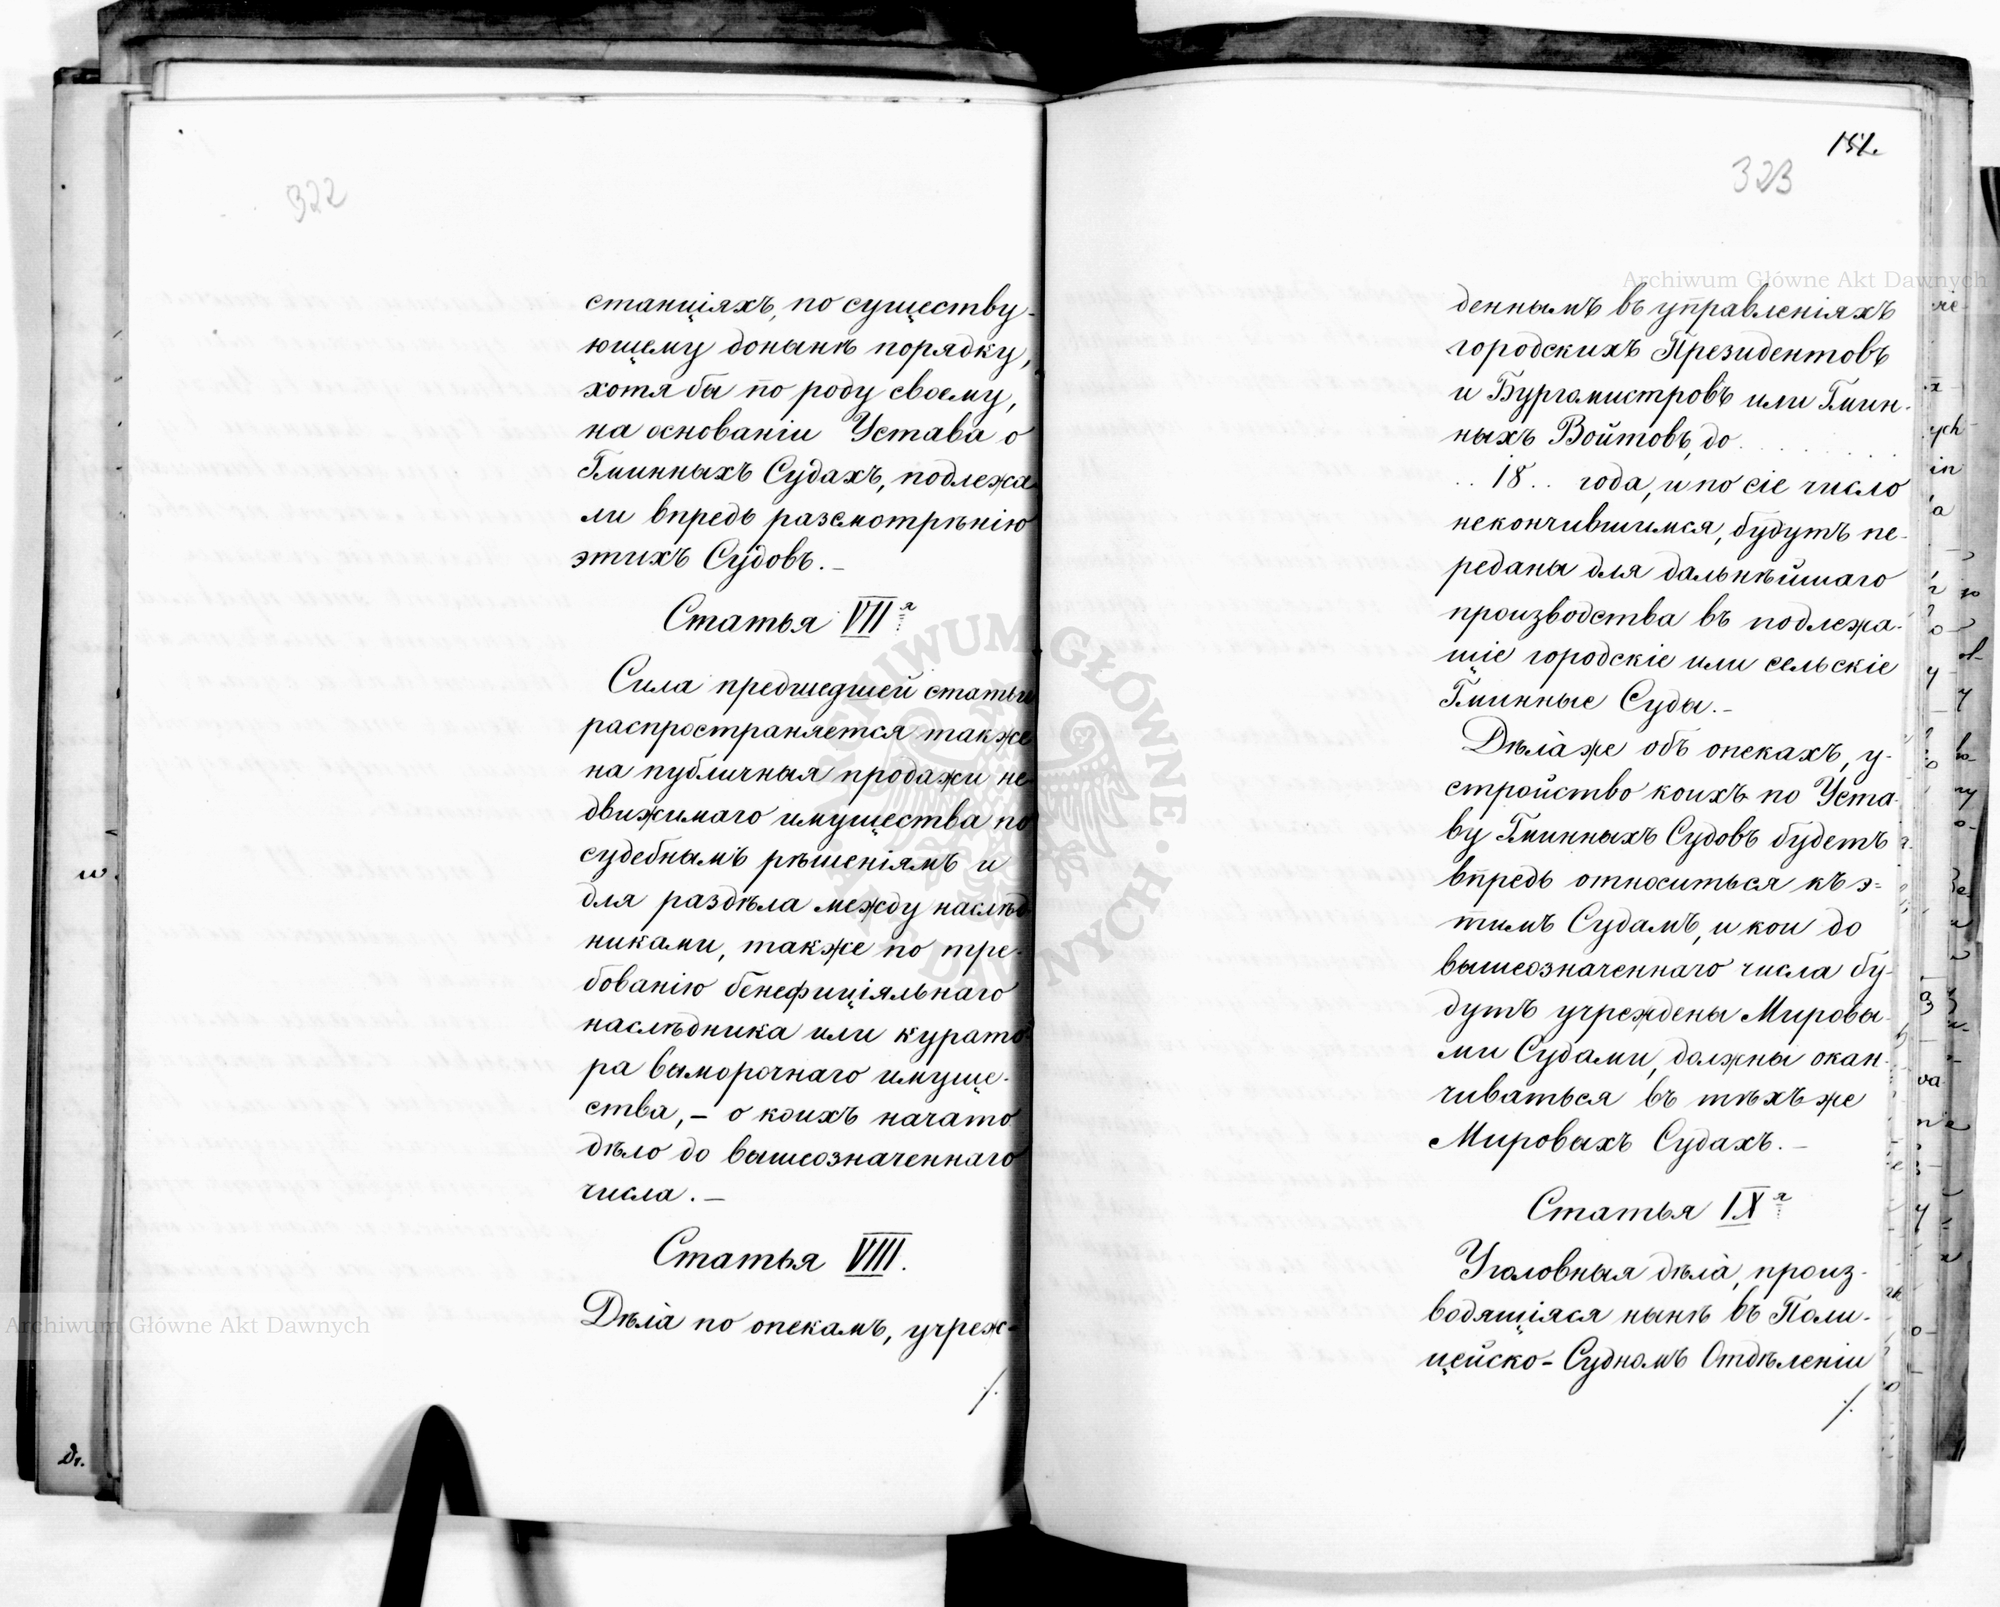 322
станціяхъ, по существу-
ющему донынѣ порядку,
хотя бы по роду своему,
на основаніи Устава о
Гминныхъ Судахъ, подлежа
ли впредь разсмотрѣнію
этихъ Судовъ.—
Статья VII я
Сила предшедшей статьи
распространяется также
на публичныя продажи не-
движимаго имущества по
судебнымъ рѣшеніямъ и
для раздѣла между наслѣд
никами, также по тре-
бованію бенефиціяльнаго
наслѣдника или курато
ра выморочнаго имуще-
ства,— о коихъ начато
дѣло до вышеозначеннаго
числа.—
Статья VIII.
Дѣла по опекамъ, учреж-
./.
151.
323
деннымъ въ управленіяхъ
городскихъ Президентовъ
и Бургомистровъ или Гмин-
ныхъ Войтовъ, до . . . . .
. . 18 . . года, и по сіе число
некончившимся, будутъ пе-
реданы для дальнѣйшаго
производства въ подлежа-
щіе городскіе или сельскіе
Гминные Суды.—
Дѣла же объ опекахъ, у-
стройство коихъ по Уста-
ву Гминныхъ Судовъ будетъ
впредь относиться къ э-
тимъ Судамъ, и кои до
вышеозначеннаго числа бу-
дутъ учреждены Мировы-
ми Судами, должны окан-
чиваться въ тѣхъ же
Мировыхъ Судахъ.—
Статья IX я
Уголовныя дѣла, произ-
водящіяся нынѣ въ Поли-
цейско-Судномъ Отдѣленіи
./.
Archiwum Główne Akt Dawnych
Archiwum Główne Akt Dawnych
ARCHIWUM GŁÓWNE AKT DAWNYCH